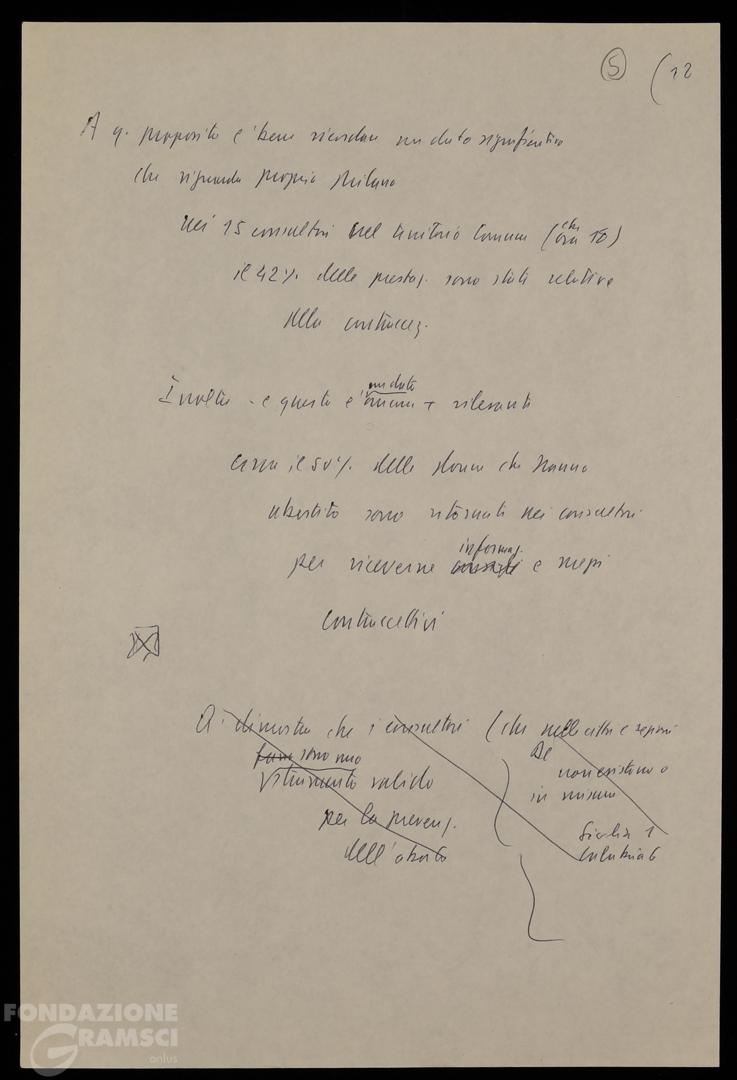 5 (12
A q. proposito è bene ricordare un dato significativo
che riguarda proprio Milano
Nei 15 consultori nel territorio Comune (che ora 18)
il 42% delle prestaz. sono stati relative
alla contraccez.
Inoltre - e questo è un dato ancora + rilevante
circa il 50% delle donne che hanno
abortito sono ritornate nei consultori
per riceverne informaz. e mezzi
contraccettivi
dimostra che i consultori (che nelle altre regioni
sono uno
strumento valido
non esistono o
in misura
per la prevenz.
Sicilia 1
dell'aborto
Calabria 6
FONDAZIONE
GRAMSCI
onlus